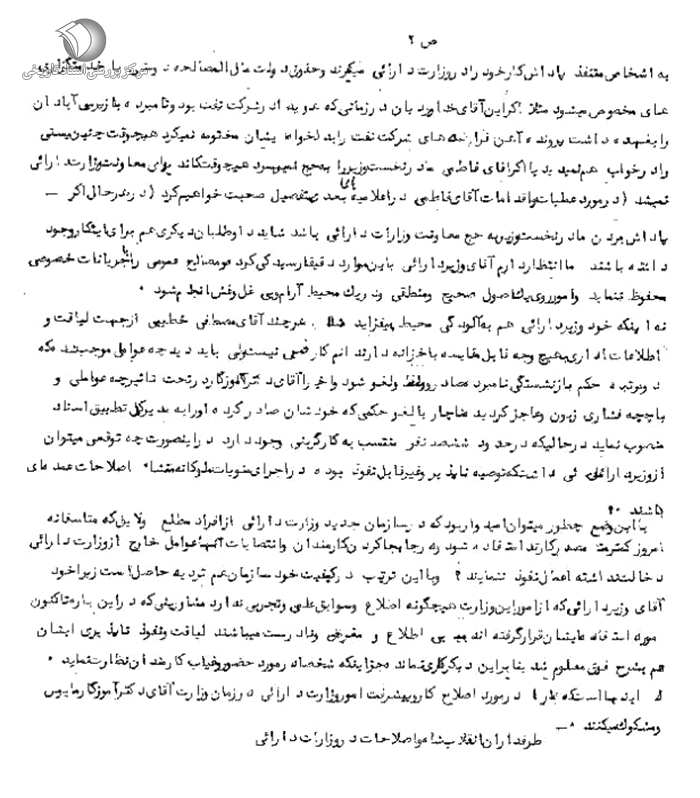 ص ۲
مرکز بررسی اسناد تاریخی
به اشخاص متنفذ پاداش کار خود را در وزارت دارائی میگیرند و حقوق دولت مال المصالحه دوستی یا خدمتگذاری
های مخصوص میشود مثلا اگر این آقای خداوردیان در زمانی که عده ای از شرکت نفت بود و نامبرده بازرسی آبادان
را بعهده داشت پرونده آهن قراضه های شرکت نفت را بدلخواه ایشان مختومه نمیکرد هیچوقت چنین پستی
را در خواب هم نمیدید یا اگر آقای فاطمی مادر نخست وزیر را به حج نمیبرد هیچوقت کاندیدای معاونت وزارت دارائی
نمیشد (در مورد عملیات و اقدامات آقای فاطمی در اعلامیه بعد بتفصیل صحبت خواهیم کرد) در هر حال اگر
پاداش بردن مادر نخست وزیر به حج معاونت وزارت دارائی باشد شاید داوطلبان دیگری هم برای اینکار وجود
داشته باشند ما انتظار داریم آقای وزیر دارائی باین موارد دقیقا رسیدگی کرده مصالح عمومی را از جریانات خصوصی
محفوظ نماید و امور روی یک اصول صحیح و منطقی و در یک محیط آرام و بی غل و غش انجام شود .
نه اینکه خود وزیر دارائی هم به آلودگی محیط بیفزاید مثلا هرچند آقای مصطفی خطیبی از جهت لیاقت و
اطلاعات اداری بهیچ وجه قابل مقایسه با خزانه دارند انم کار قسمی نیست ولی باید دید چه عوامل موجب شد که
دو نوبت حکم بازنشستگی نامبرده صادر و لغو شود و اخیرا آقای دکتر آموزگار تحت تاثیر چه عواملی و
با چه فشاری زبون و عاجز گردید که ناچار با لغو حکمی که خودشان صادر کرده او را به مدیر کل تطبیق اسناد
منصوب نماید در حالیکه در حدود ششصد نفر منتسب به کارگزینی وجود دارد در اینصورت چه توقعی میتوان
از وزیر دارائی داشت که توصیه ناپذیر و غیر قابل نفوذ بوده در اجرای منویات ملوکانه منشاء اصلاحات عمده ای
باشند ؟
با این وضع چطور میتوان امیدوار بود که در سازمان جدید وزارت دارائی از افراد مطلع و لایق که متاسفانه
امروز کمتر مصدر کارند استفاده شود و در جابجا کردن کارمندان و انتصابات آنها عوامل خارج از وزارت دارائی
دخالت نداشته اعمال نفوذ ننمایند ؟ و با این ترتیب در کیفیت خود سازمان هم تردید حاصل است زیرا خود
آقای وزیر دارائی که از امور این وزارت هیچگونه اطلاع و سوابق علمی و تجربی ندارد مشاورینی که در این باره تاکنون
مورد استفاده ایشان قرار گرفته اند همه بی اطلاع و مغرض و نادرست میباشند لیاقت و نفوذ ناپذیری ایشان
هم بشرح فوق معلوم شد بنابراین دیگر کاری نماند بجز اینکه شخصا در مورد حضور و غیاب کارمندان نظارت نماید .
اینجا است که ما را در مورد اصلاح کار و پیشرفت امور وزارت دارائی در زمان وزارت آقای دکتر آموزگار مایوس
و مشکوک میکنند .
طرفداران انقلاب شاه و اصلاحات در وزارت دارائی